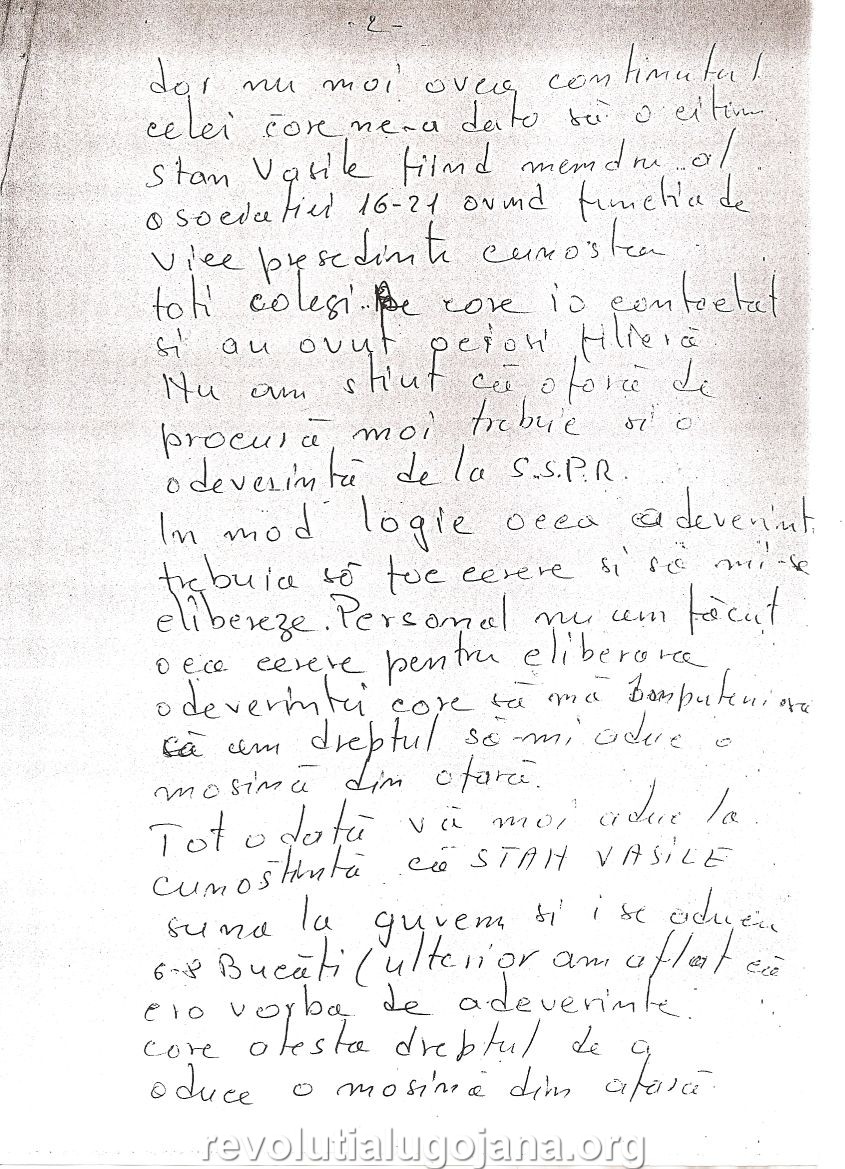 - 2 -
dar nu mai avea continutul
celei care ne-a dato să o citim
Stan Vasile fiind memdru al
asociatiei 16-21 avind functia de
vice presedinte cunostea
toti colegi. pe care ia contactat
si au avut aceiasi filieră
Nu am stiut că afară de
procură mai trebuie si o
adeverintă de la S.S.P.R.
In mod logic acea adeverint.
trebuia să fac cerere si să mi-se
elibereze. Personal nu am făcut
acea cerere pentru eliberarea
adeverintei care să mă
că am dreptul să-mi aduc o
masină din afară.
Tot o dată vă mai aduc la
cunostintă că STAN VASILE
suna la guvern si i se aducea
6-8 Bucăti (ulterior am aflat că
era vorba de adeverinte.
care atesta dreptul de a
aduce o masină din afară
revolutialugojana.org